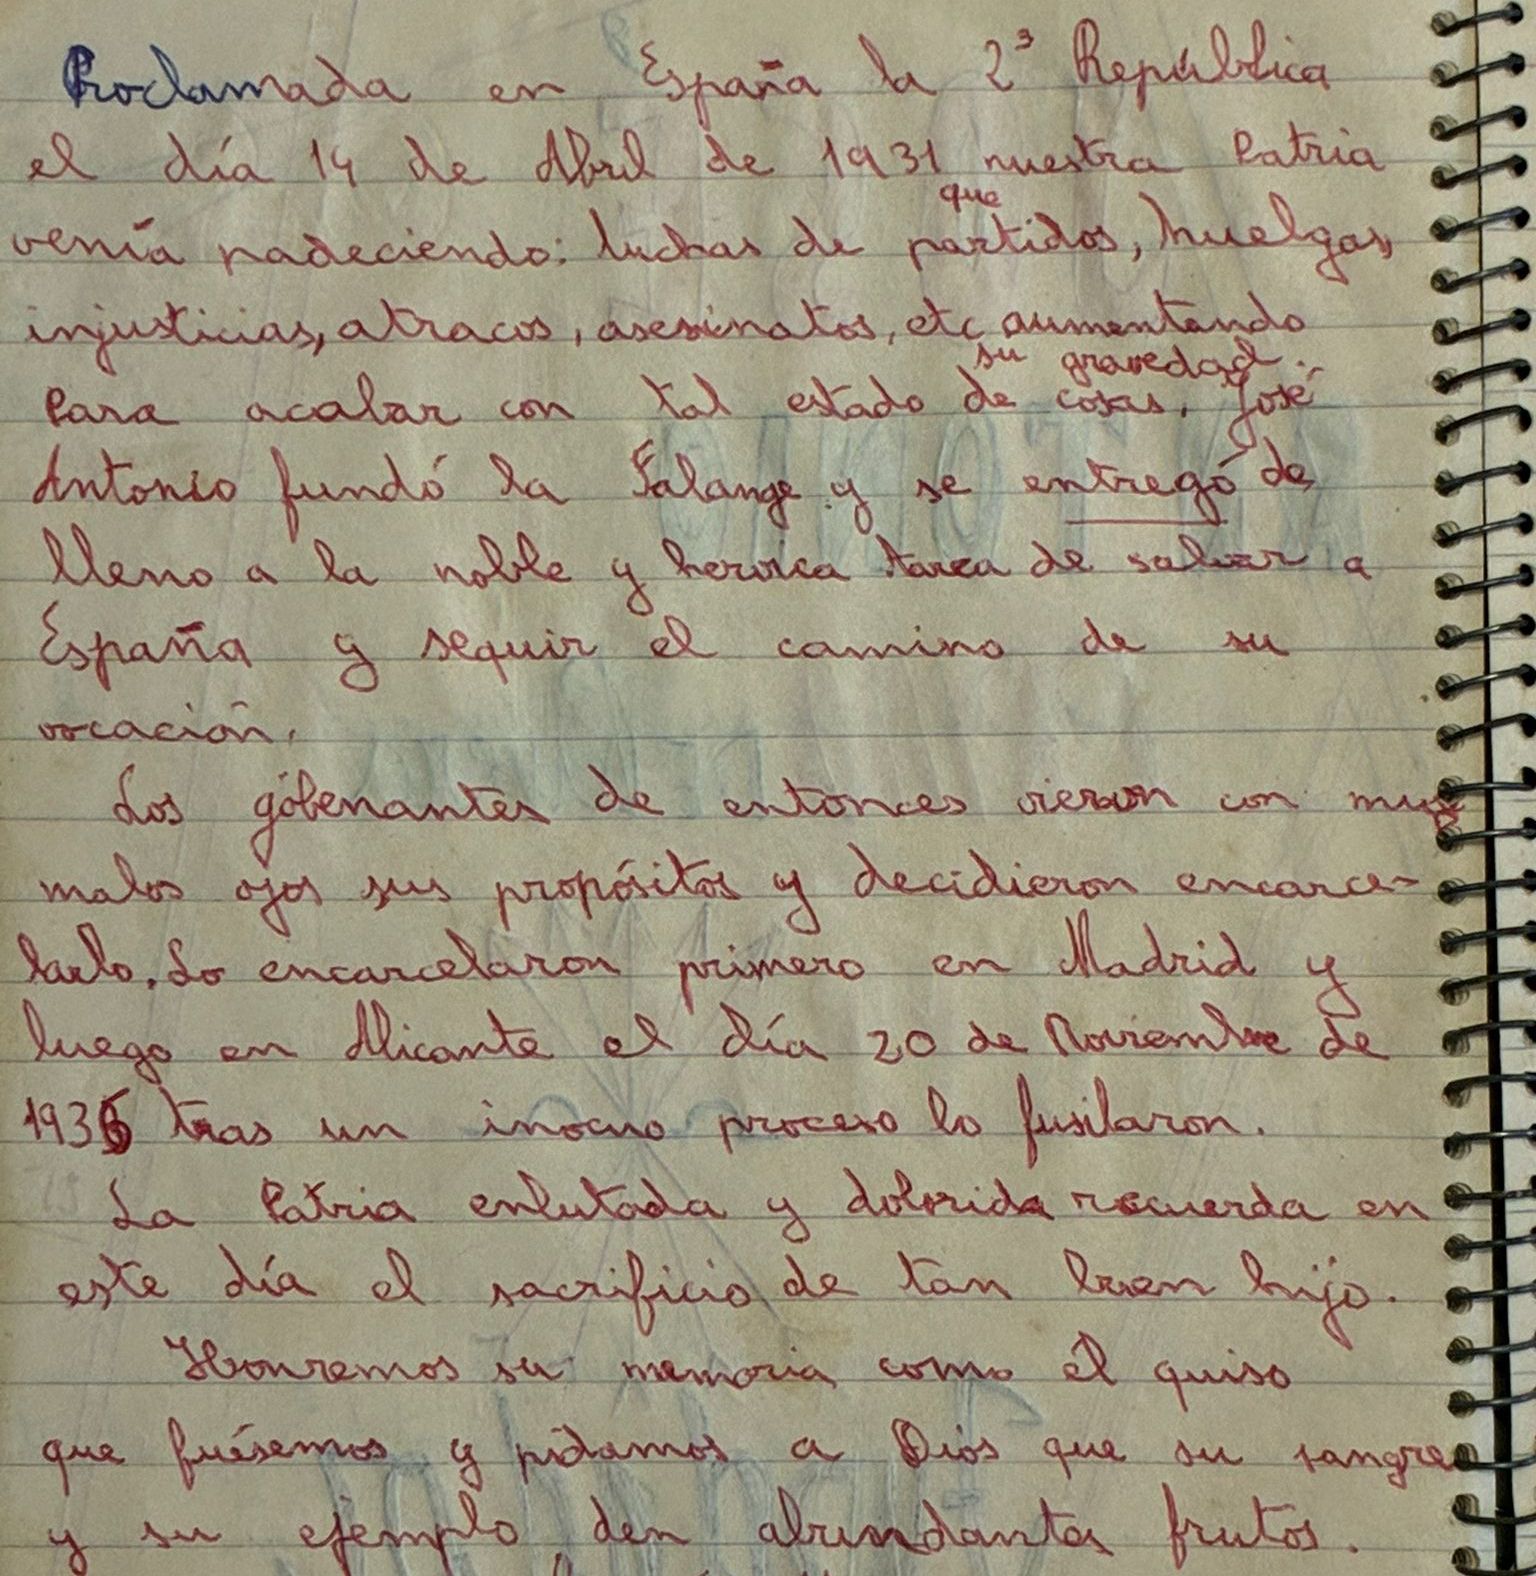 Proclamada en España la 2ª República
el día 14 de Abril de 1931 nuestra Patria
que
venía padeciendo: luchas de partidos, huelgas,
injusticias, atracos, asesinatos, etc aumentando
su gravedad.
Para acabar con tal estado de cosas, José
Antonio fundó la Falange y se entregó de
lleno a la noble y heroica tarea de salvar a
España y seguir el camino de su
vocación.
Los góbenantes de entonces vieron con muy
malos ojos sus propósitos y decidieron encarce-
larlo. Lo encarcelaron primero en Madrid y
luego en Alicante el día 20 de Noviembre de
1936 tras un inocuo proceso lo fusilaron.
La Patria enlutada y dolorida recuerda en
este día el sacrificio de tan buen hijo.
Honremos su memoria como él quiso
que fuésemos y pidamos a Dios que su sangre
y su ejemplo den abundantes frutos.